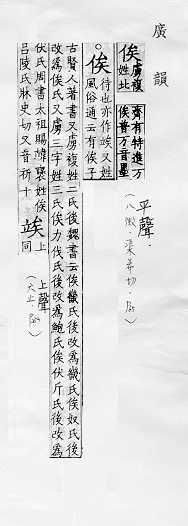 廣韻
平聲.
(八微渠希切.居)
俟 虜複姓北齊有特進万俟普万音墨
俟 待也亦作竢又姓風俗通云有俟子
古賢人著書又虜複姓二氏後魏書云俟畿氏後改為畿氏俟奴氏後
改為俟氏又虜三字姓三氏俟力伐氏後改為鮑氏俟伏斤氏後改為
伏氏周書太祖賜
姓俟
上
吕陵氏牀史切又音祈十
竢 同
上聲
(六止